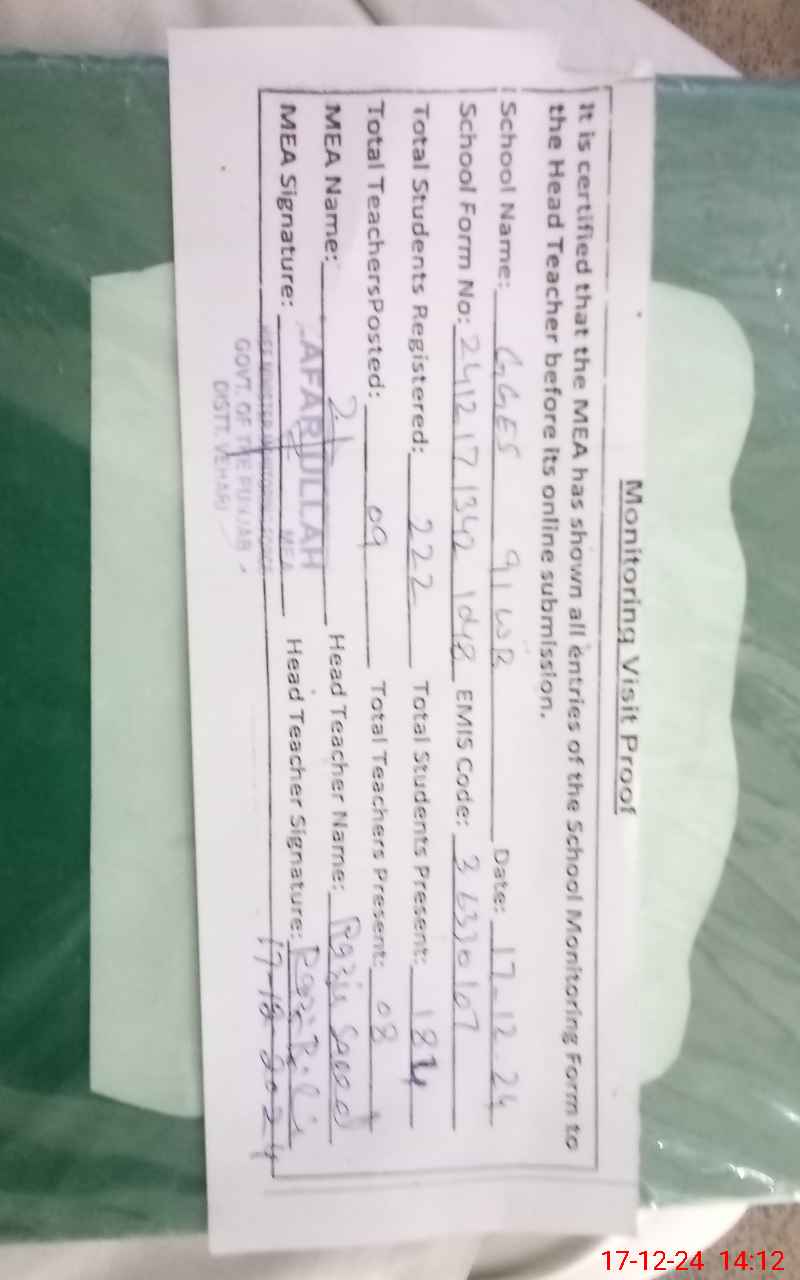 Monitoring Visit Proof
It is certified that the MEA has shown all entries of the School Monitoring Form to
the Head Teacher before its online submission.
School Name: GGES 91 WB Date: 17-12-24
School Form No: EMIS Code: 36330107
Total Students Registered: 222 Total Students Present: 184
Total TeachersPosted: 09 Total Teachers Present: 08
MEA Name: Head Teacher Name:
MEA Signature: Head Teacher Signature:
17-12-2024
MEA
GOVT. OF THE PUNJAB
DISTT. VEHARI
17-12-24 14:12